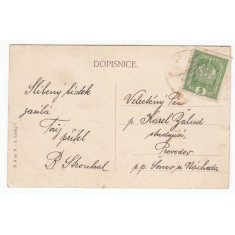 DOPISNICE.
Slíbený lístek
zasílá
Tvůj
přítel
B. Strouhal
Velectěný Pán
p. Karel Žalud
studující
Provodov
p. p. Šonov u Náchoda
5